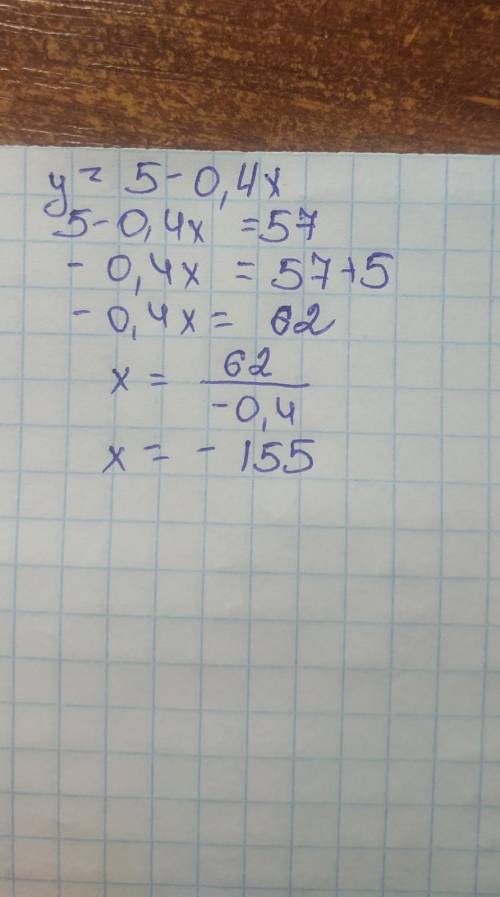 y = 5 - 0,4x
5 - 0,4x = 57
- 0,4x = 57 + 5
- 0,4x = 62
x = 62 / -0,4
x = - 155